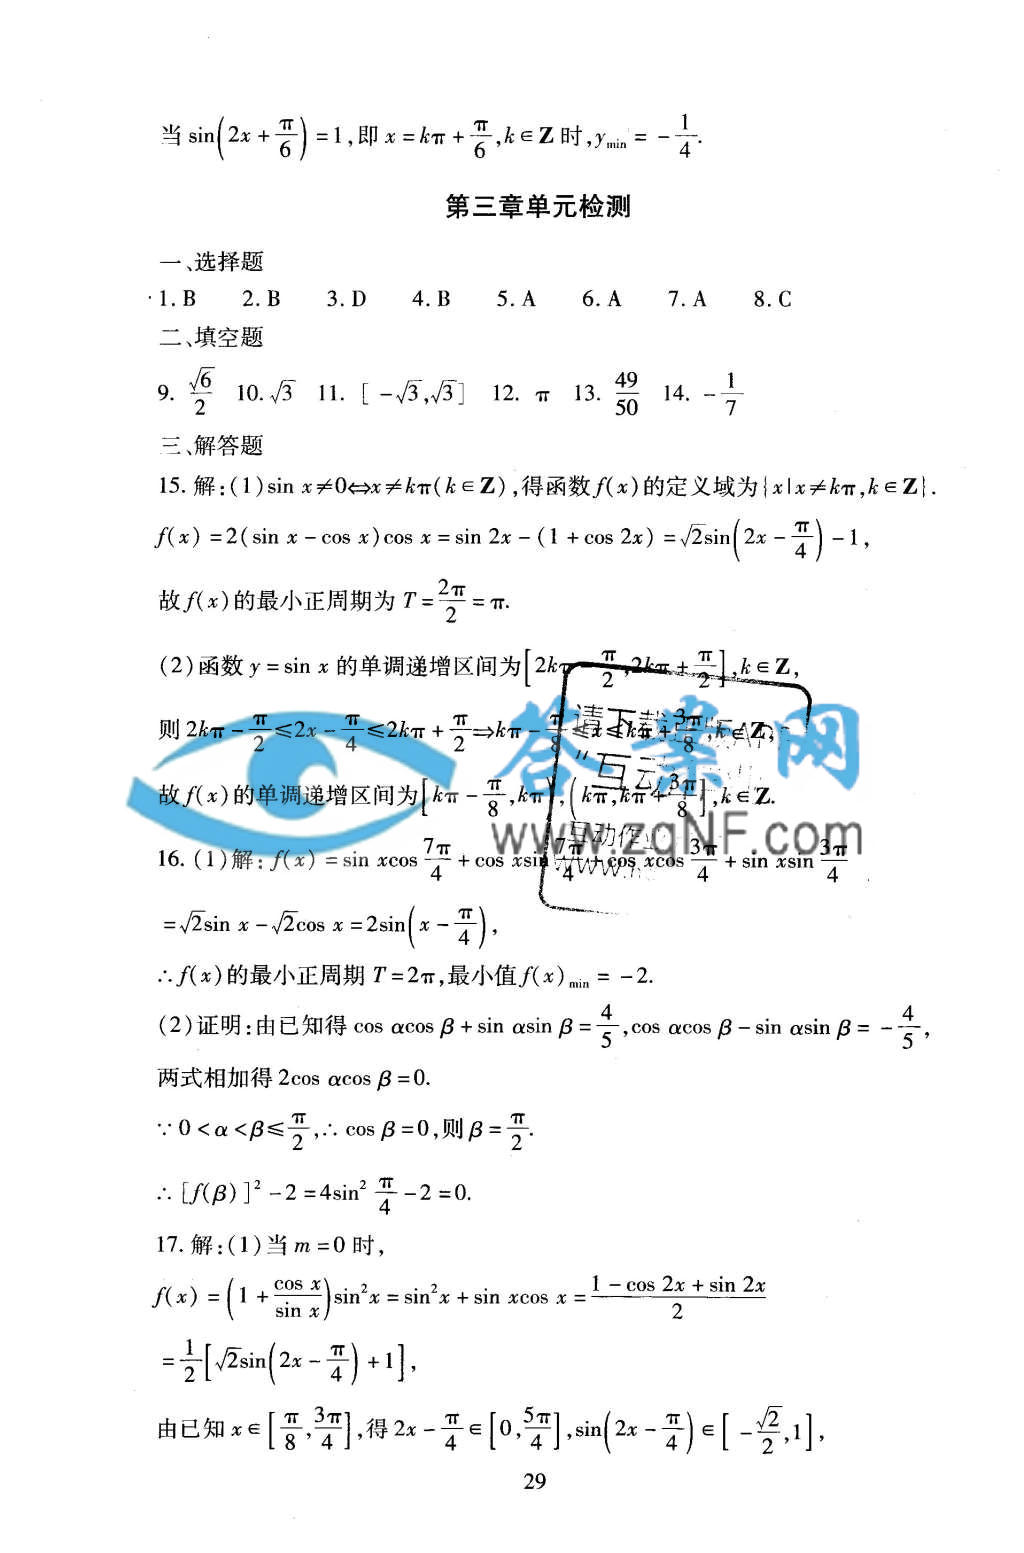 当 sin(2x + π/6) = 1,即 x = kπ + π/6, k∈Z 时, y_min = -1/4.
第三章单元检测
一、选择题
1. B 2. B 3. D 4. B 5. A 6. A 7. A 8. C
二、填空题
9. √6/2 10. √3 11. [-√3,√3] 12. π 13. 49/50 14. -1/7
三、解答题
15. 解:(1) sin x≠0⇔x≠kπ(k∈Z),得函数f(x)的定义域为{x|x≠kπ,k∈Z}.
f(x) = 2(sin x - cos x)cos x = sin 2x - (1 + cos 2x) = √2sin(2x - π/4) - 1,
故f(x)的最小正周期为 T = 2π/2 = π.
(2)函数 y = sin x 的单调递增区间为[2kπ - π/2, 2kπ + π/2], k∈Z,
则 2kπ - π/2 ≤ 2x - π/4 ≤ 2kπ + π/2 ⇒ kπ - π/8 ≤ x ≤ kπ + 3π/8, k∈Z,
故f(x)的单调递增区间为[kπ - π/8, kπ), (kπ, kπ + 3π/8], k∈Z.
答案网
www.zqNF.com
请下载
互动作业
16. (1)解: f(x) = sin xcos 7π/4 + cos xsin 7π/4 + cos xcos 3π/4 + sin xsin 3π/4
= √2sin x - √2cos x = 2sin(x - π/4),
∴ f(x)的最小正周期 T = 2π,最小值 f(x)_min = -2.
(2)证明:由已知得 cos αcos β + sin αsin β = 4/5, cos αcos β - sin αsin β = -4/5,
两式相加得 2cos αcos β = 0.
∵ 0 < α < β ≤ π/2, ∴ cos β = 0,则 β = π/2.
∴ [f(β)]² - 2 = 4sin² π/4 - 2 = 0.
17. 解:(1)当 m = 0 时,
f(x) = (1 + cos x/sin x)sin²x = sin²x + sin xcos x = (1 - cos 2x + sin 2x)/2
= 1/2[√2sin(2x - π/4) + 1],
由已知 x∈[π/8, 3π/4],得 2x - π/4∈[0, 5π/4], sin(2x - π/4)∈[-√2/2, 1],
29